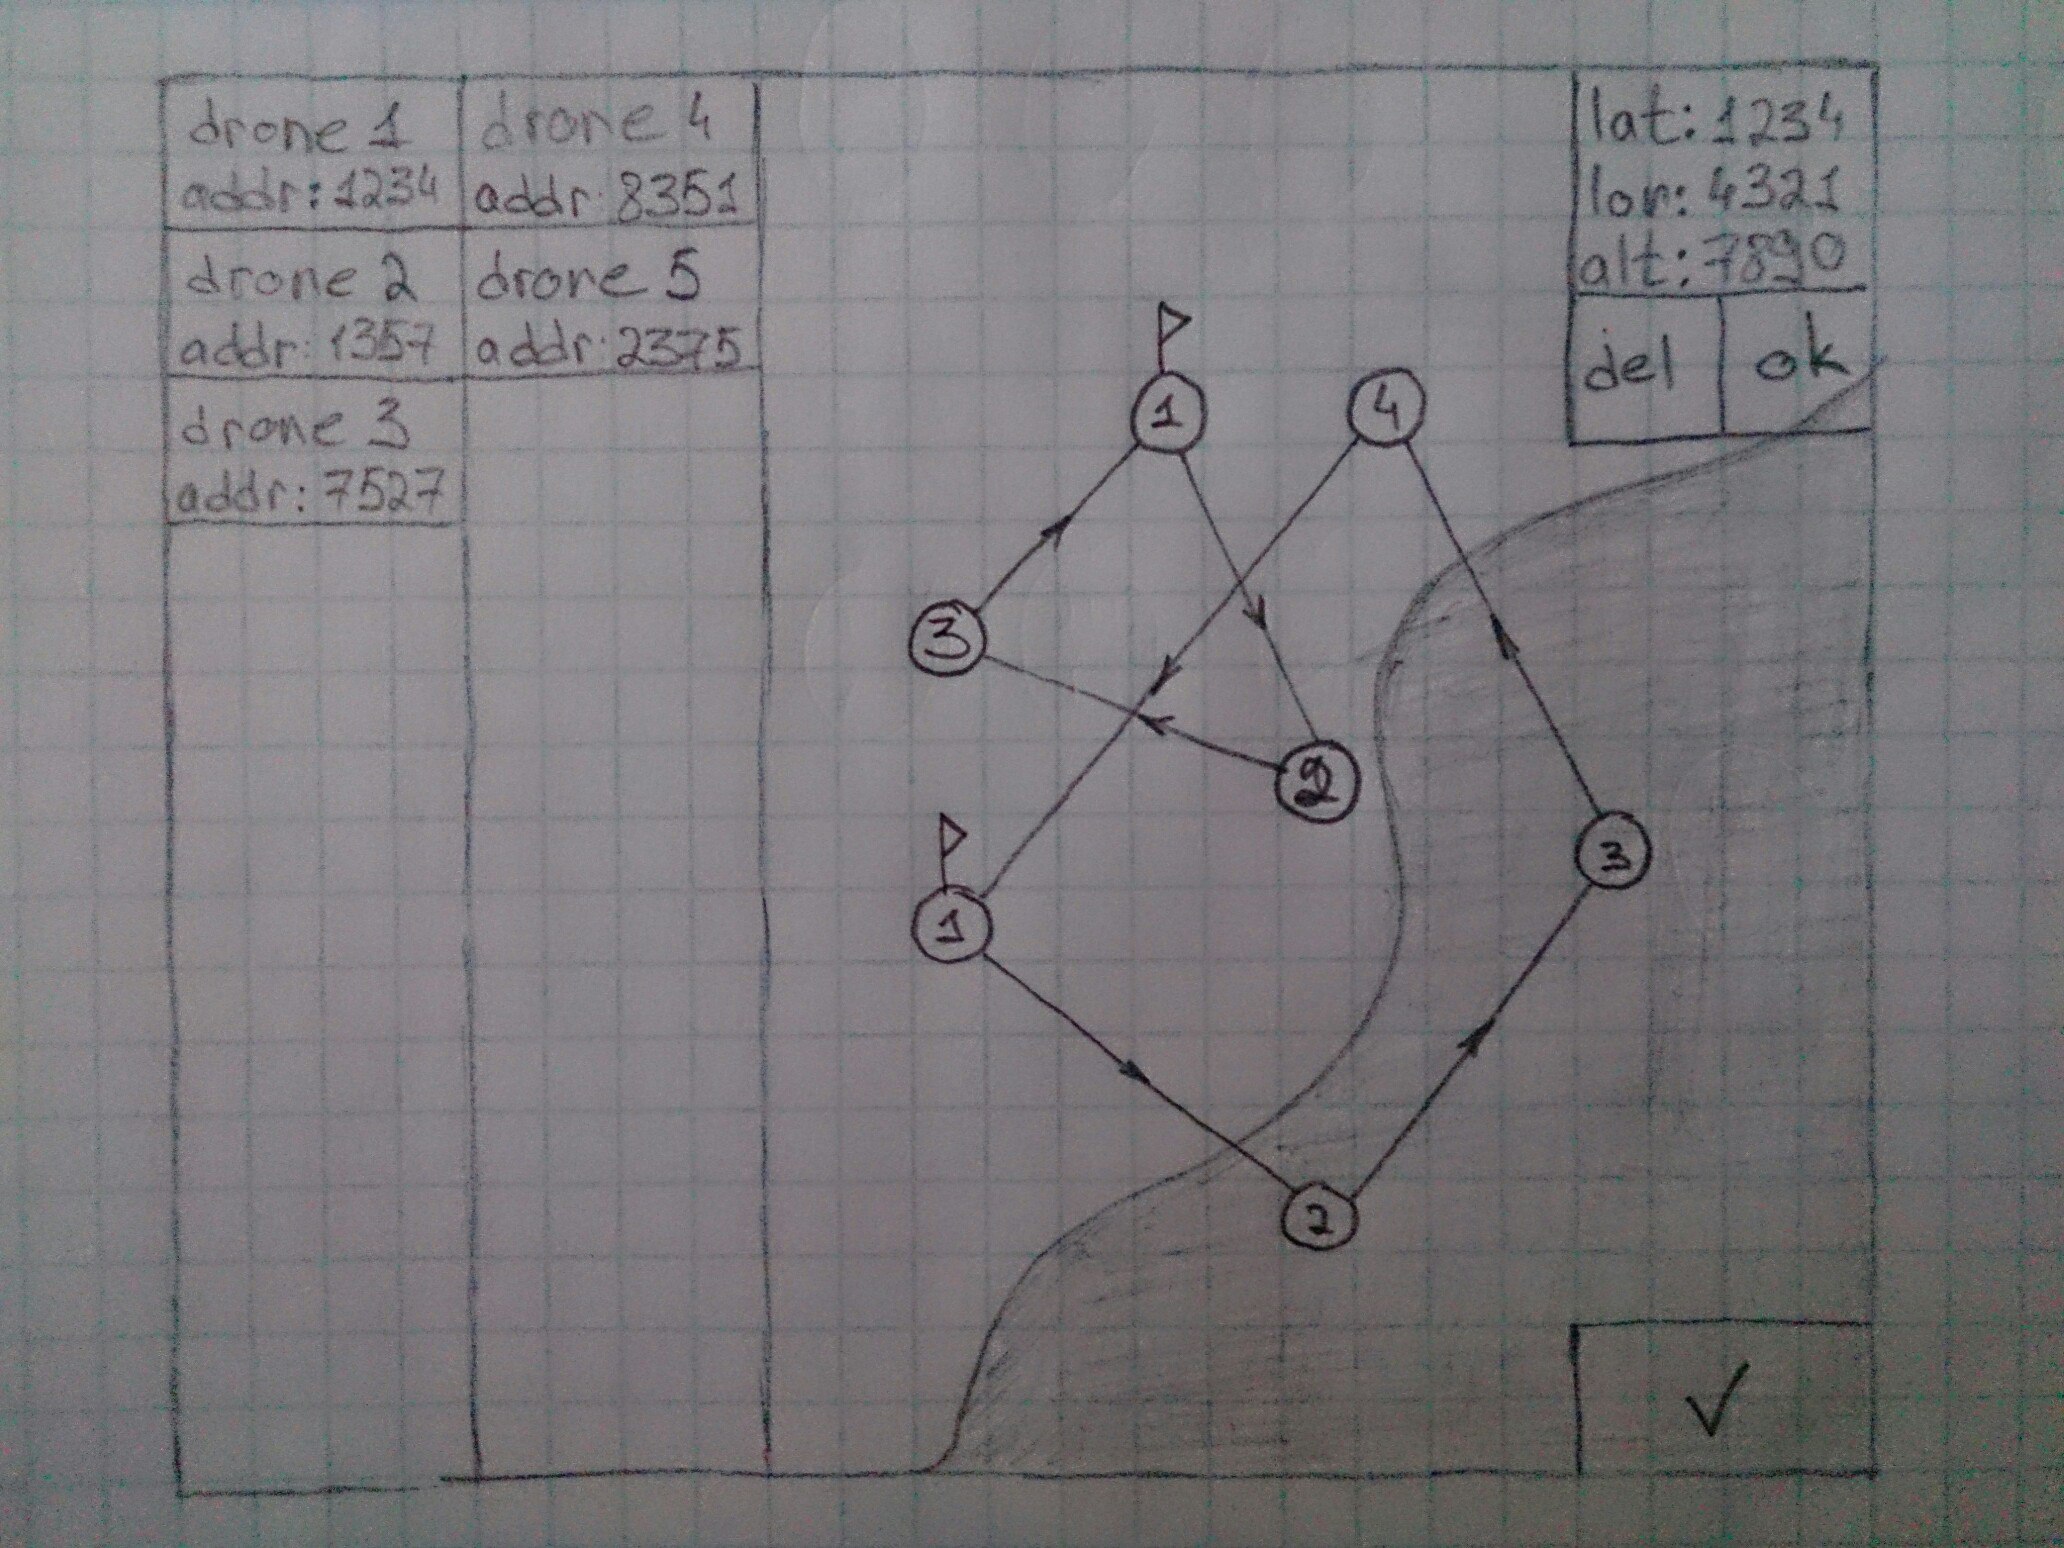 drone 1
addr: 1234
drone 4
addr: 8351
drone 2
addr: 1357
drone 5
addr: 2375
drone 3
addr: 7527
lat: 1234
lon: 4321
alt: 7890
del
ok
1
4
3
2
1
3
2